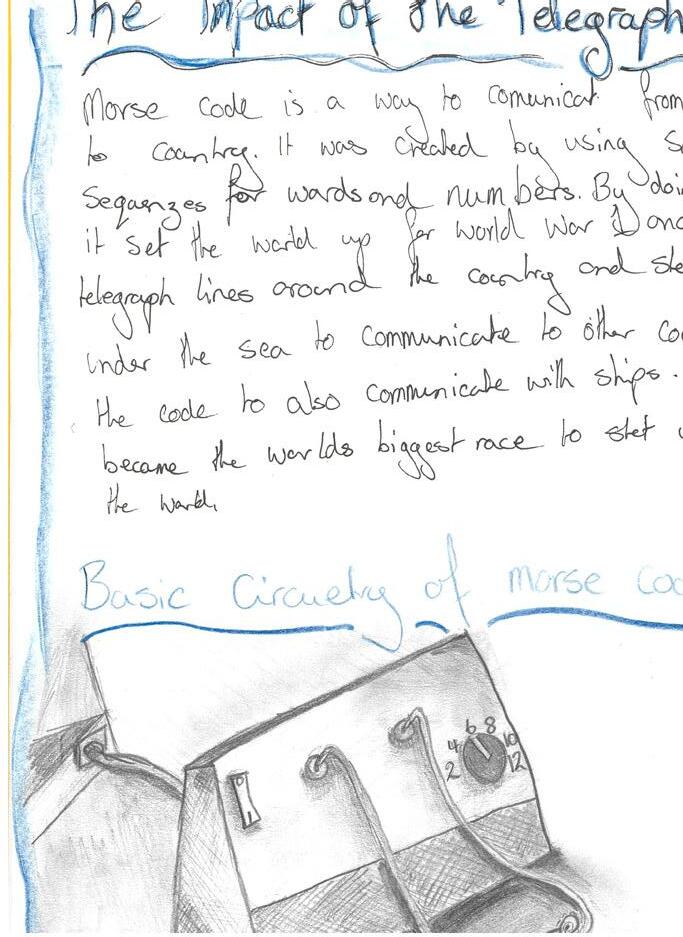 The Impact of the Telegraph
Morse code is a way to comunicat from
to country. It was created by using
Sequenzes for words and numbers. By doi
it set the world up for world war 1 and
telegraph lines around the country and ste
under the sea to communicate to other co
the code to also communicate with ships.
became the worlds biggest race to stet
the world.
Basic Circuetry of morse Co
2 4 6 8 10 12